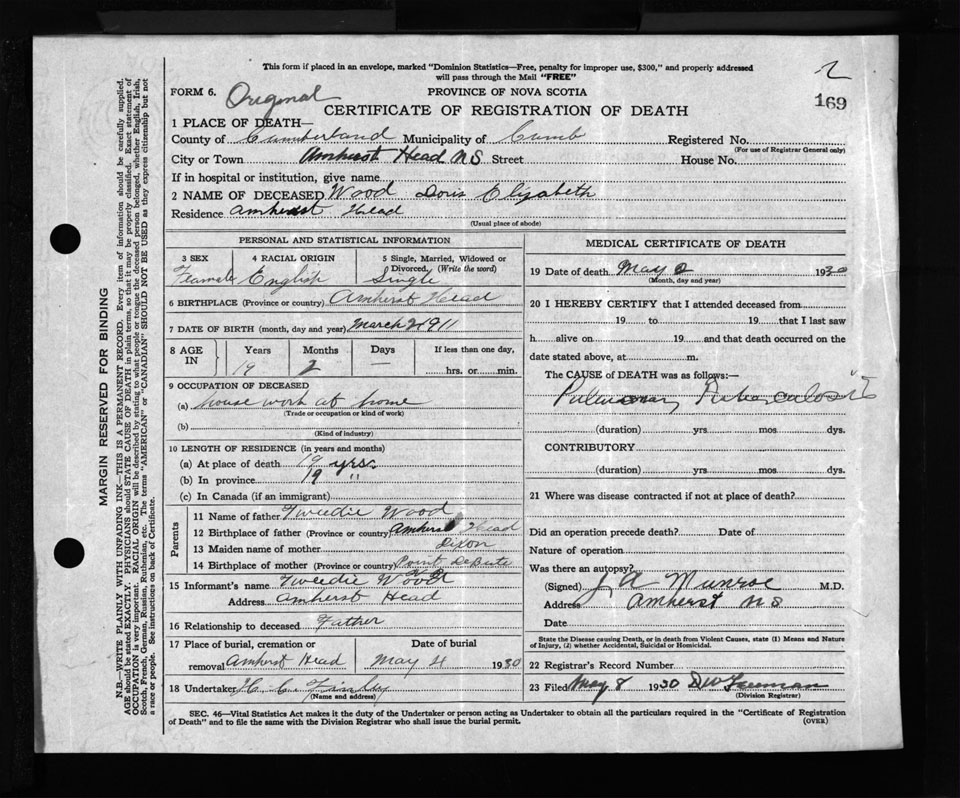 This form if placed in an envelope, marked "Dominion Statistics—Free, penalty for improper use, $300," and properly addressed
will pass through the Mail "FREE"
2
FORM 6. Original PROVINCE OF NOVA SCOTIA
169
CERTIFICATE OF REGISTRATION OF DEATH
1 PLACE OF DEATH—
County of Cumberland Municipality of Cumb Registered No.
(For use of Registrar General only)
City or Town Amherst Head N S Street House No.
If in hospital or institution, give name
2 NAME OF DECEASED Wood Doris Elizabeth
Residence Amherst Head
(Usual place of abode)
PERSONAL AND STATISTICAL INFORMATION
3 SEX 4 RACIAL ORIGIN 5 Single, Married, Widowed or
Divorced. (Write the word)
Female English Single
6 BIRTHPLACE (Province or country) Amherst Head
7 DATE OF BIRTH (month, day and year) March 1911
8 AGE IN Years Months Days If less than one day,
19 2 — hrs. or min.
9 OCCUPATION OF DECEASED
(a) house work at home
(Trade or occupation or kind of work)
(b)
(Kind of industry)
10 LENGTH OF RESIDENCE (in years and months)
(a) At place of death 19 yrs.
(b) In province 19 "
(c) In Canada (if an immigrant)
Parents
11 Name of father Tweedie Wood
12 Birthplace of father (Province or country) Amherst Head
13 Maiden name of mother Dixon
14 Birthplace of mother (Province or country) Point DeBute
15 Informant's name Tweedie Wood
Address Amherst Head
16 Relationship to deceased Father
17 Place of burial, cremation or Date of burial
removal Amherst Head May 4 1930
18 Undertaker H C
(Name and address)
MEDICAL CERTIFICATE OF DEATH
19 Date of death May 2 1930
(Month, day and year)
20 I HEREBY CERTIFY that I attended deceased from
19 to 19 that I last saw
h alive on 19 and that death occurred on the
date stated above, at m.
The CAUSE of DEATH was as follows:—
Pulmonary Tuberculosis
(duration) yrs. mos. dys.
CONTRIBUTORY
(duration) yrs. mos. dys.
21 Where was disease contracted if not at place of death?
Did an operation precede death? Date of
Nature of operation
Was there an autopsy?
(Signed) J A Munroe M.D.
Address Amherst N S
Date
State the Disease causing Death, or in death from Violent Causes, state (1) Means and Nature
of Injury, (2) whether Accidental, Suicidal or Homicidal.
22 Registrar's Record Number
23 Filed May 8 1930 Freeman
(Division Registrar)
SEC. 46—Vital Statistics Act makes it the duty of the Undertaker or person acting as Undertaker to obtain all the particulars required in the "Certificate of Registration
of Death" and to file the same with the Division Registrar who shall issue the burial permit.
(OVER)
MARGIN RESERVED FOR BINDING
N.B.—WRITE PLAINLY WITH UNFADING INK—THIS IS A PERMANENT RECORD. Every item of information should be carefully supplied.
AGE should be stated EXACTLY. PHYSICIANS should STATE CAUSE OF DEATH in plain terms, so that it may be properly classified. Exact statement of
OCCUPATION is very important. RACIAL ORIGIN will be described by stating to what people or tongue the deceased person belonged, whether English, Irish,
Scotch, French, German, Russian, Ruthenian, etc. The terms "AMERICAN" or "CANADIAN" SHOULD NOT BE USED as they express citizenship but not
a race or people. See instructions on back of Certificate.